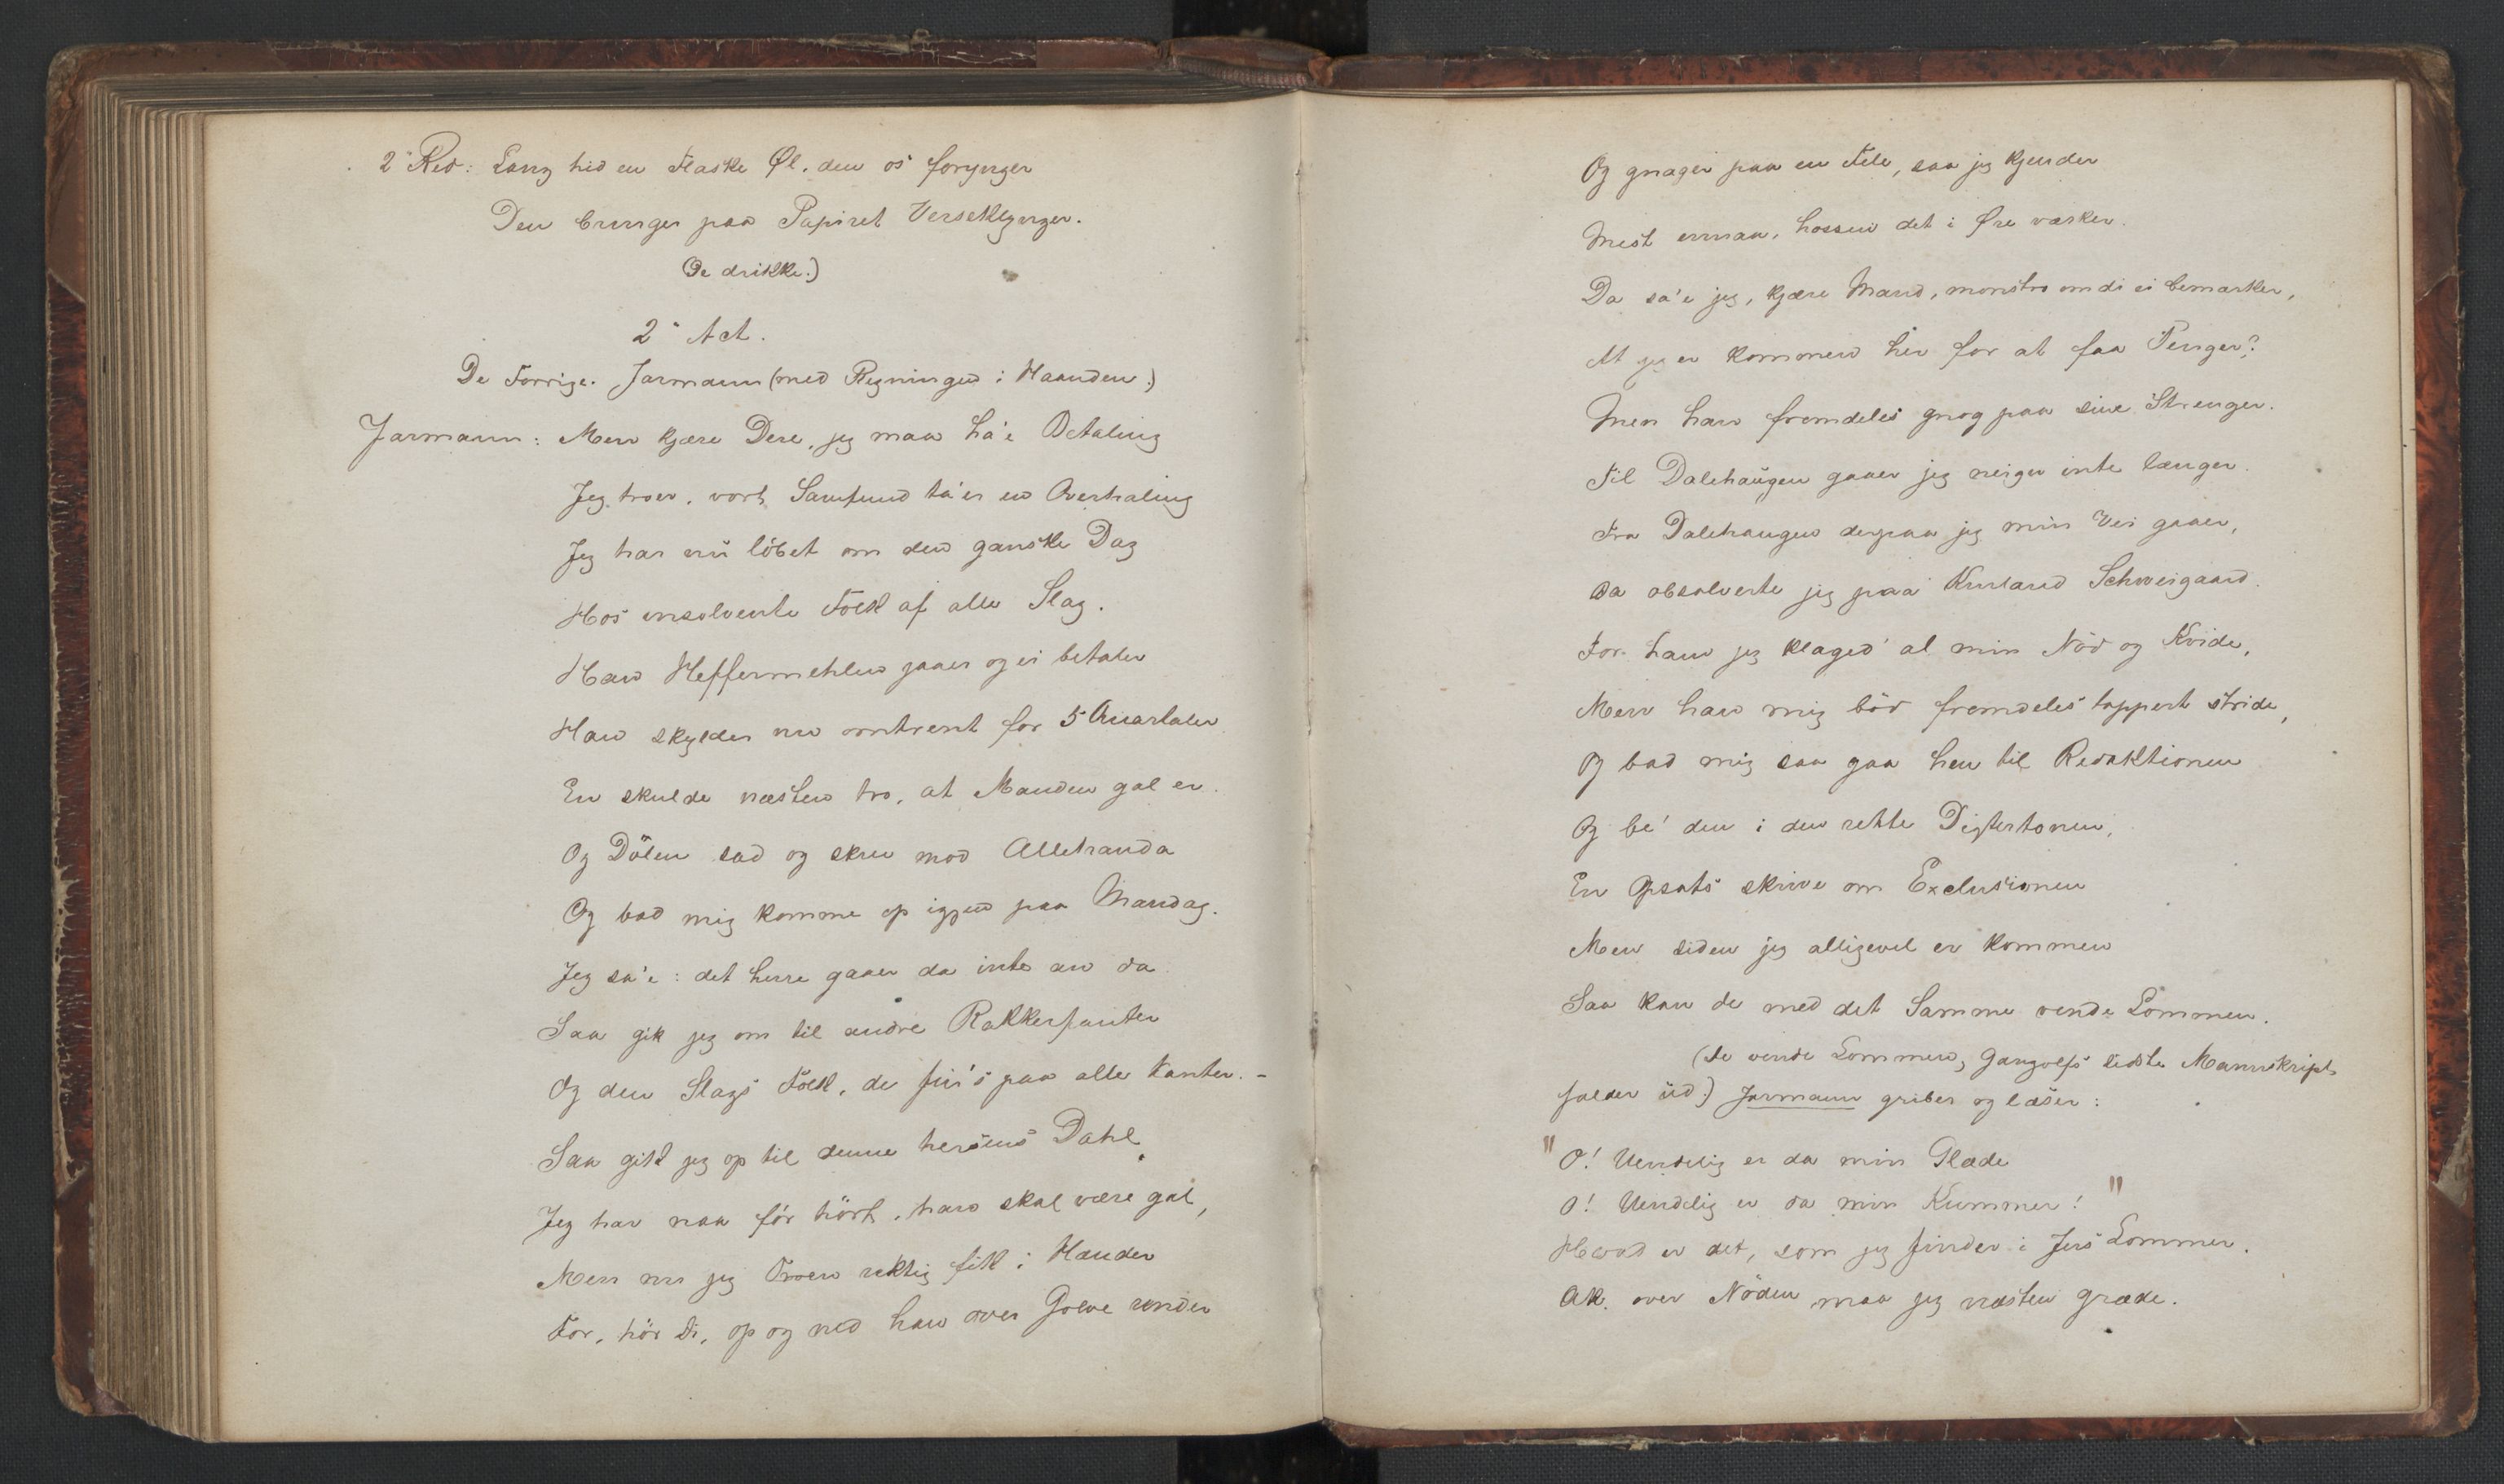 2' Red: Lang hid en Flaske Øl, den os forynger
Den bringer paa Papiret Verseklynger.
(De drikke.)
2' Act.
De Forrige. Jarmann (med Regningen i Haanden.)
Jarmann: Men kjære Dere, jeg maa ha'e Betaling
Jeg troer, vort Samfund ta'er en Overhaling
Jeg har nu löbet om den ganske Dag
Hos insolvente Folk af alle Slag.
Han Heffermehlen gaaer og ei betaler
Han skylder nu omtrent for 5 Quartaler
En skulde næsten tro, at Manden gal er.
Og Dölen sad og skrev mod Allehanda
Og bad mig komme op igjen paa Mandag.
Jeg sa'e: det herre gaaer da inte an da
Saa gik jeg om til andre Rakkerfanter
Og den Slags Folk, de fin's paa alle Kanter. -
Saa gik jeg op til denne hersens Dahl,
Jeg har naa för hört, han skal være gal,
Men nu jeg Troen rektig fik i Hænder
For, hör Di, op og ned han over Golve render
Og gnager paa en Fele, saa jeg kjender
Mest ennaa, hossen det i Øre værker.
Da sa'e jeg, kjære Mand, monstro om di ei bemærker,
At jeg er kommen her for at faa Penger?
Men han fremdeles gnog paa sine Strenger.
Til Dalehaugen gaaer jeg neigu inte længer.
Fra Dalehaugen derpaa jeg min Vei gaaer,
Da observerte jeg paa Schweigaard.
For ham jeg klaged' al min Nöd og Kvide,
Men han mig böd fremdeles tappert stride,
Og bad mig saa gaa hen til Redaktionen
Og be' den i den rette Digtertonen,
En Opsats skrive om Exclusionen
Men siden jeg alligevel er kommen
Saa kan de med det Samme vende Lommen.
(De vende Lommen, Gangolfs sidste Manuskript
falder ud.) Jarmann griber og læser:
"O! Uendelig er da min Glæde
O! Uendelig er da min Kummer!"
Hvad er det, som jeg finder i Jers Lommer.
Ak. over Nöden maa jeg næsten græde.